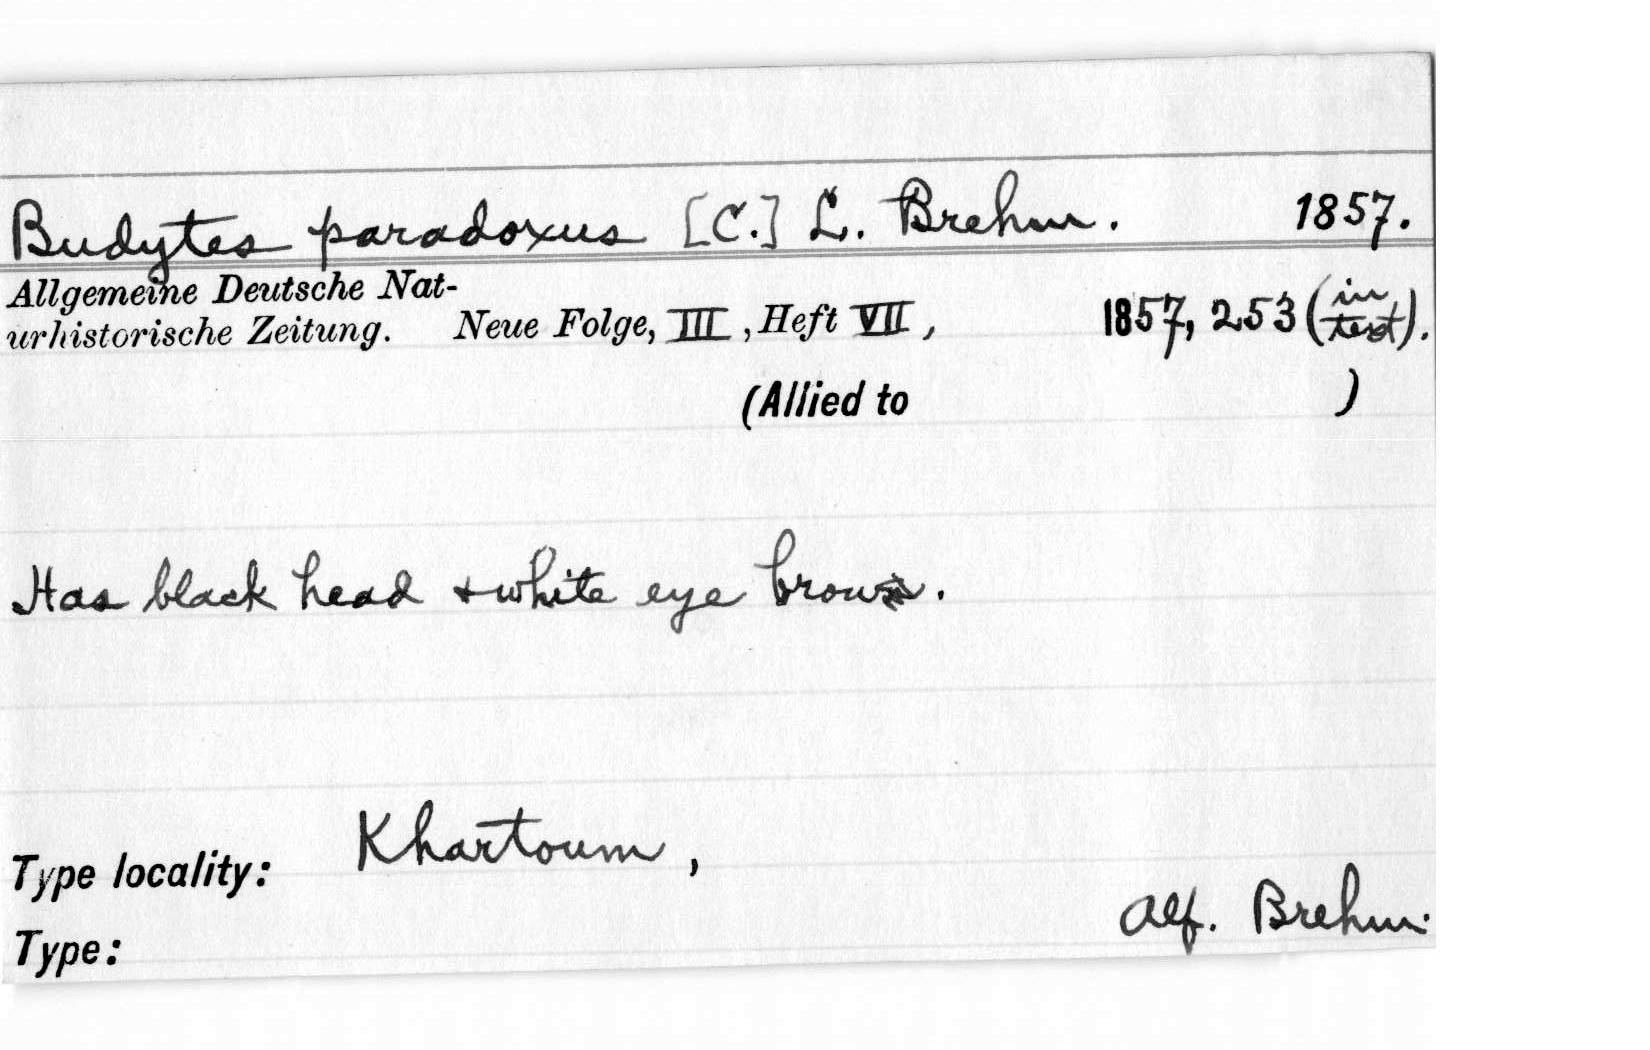 Budytes paradoxus [C.] L. Brehm. 1857.
Allgemeine Deutsche Nat-
urhistorische Zeitung. Neue Folge, III, Heft VII, 1857, 253 (in text).
(Allied to )
Has black head & white eye brow.
Type locality: Khartoum,
Alf. Brehm.
Type: